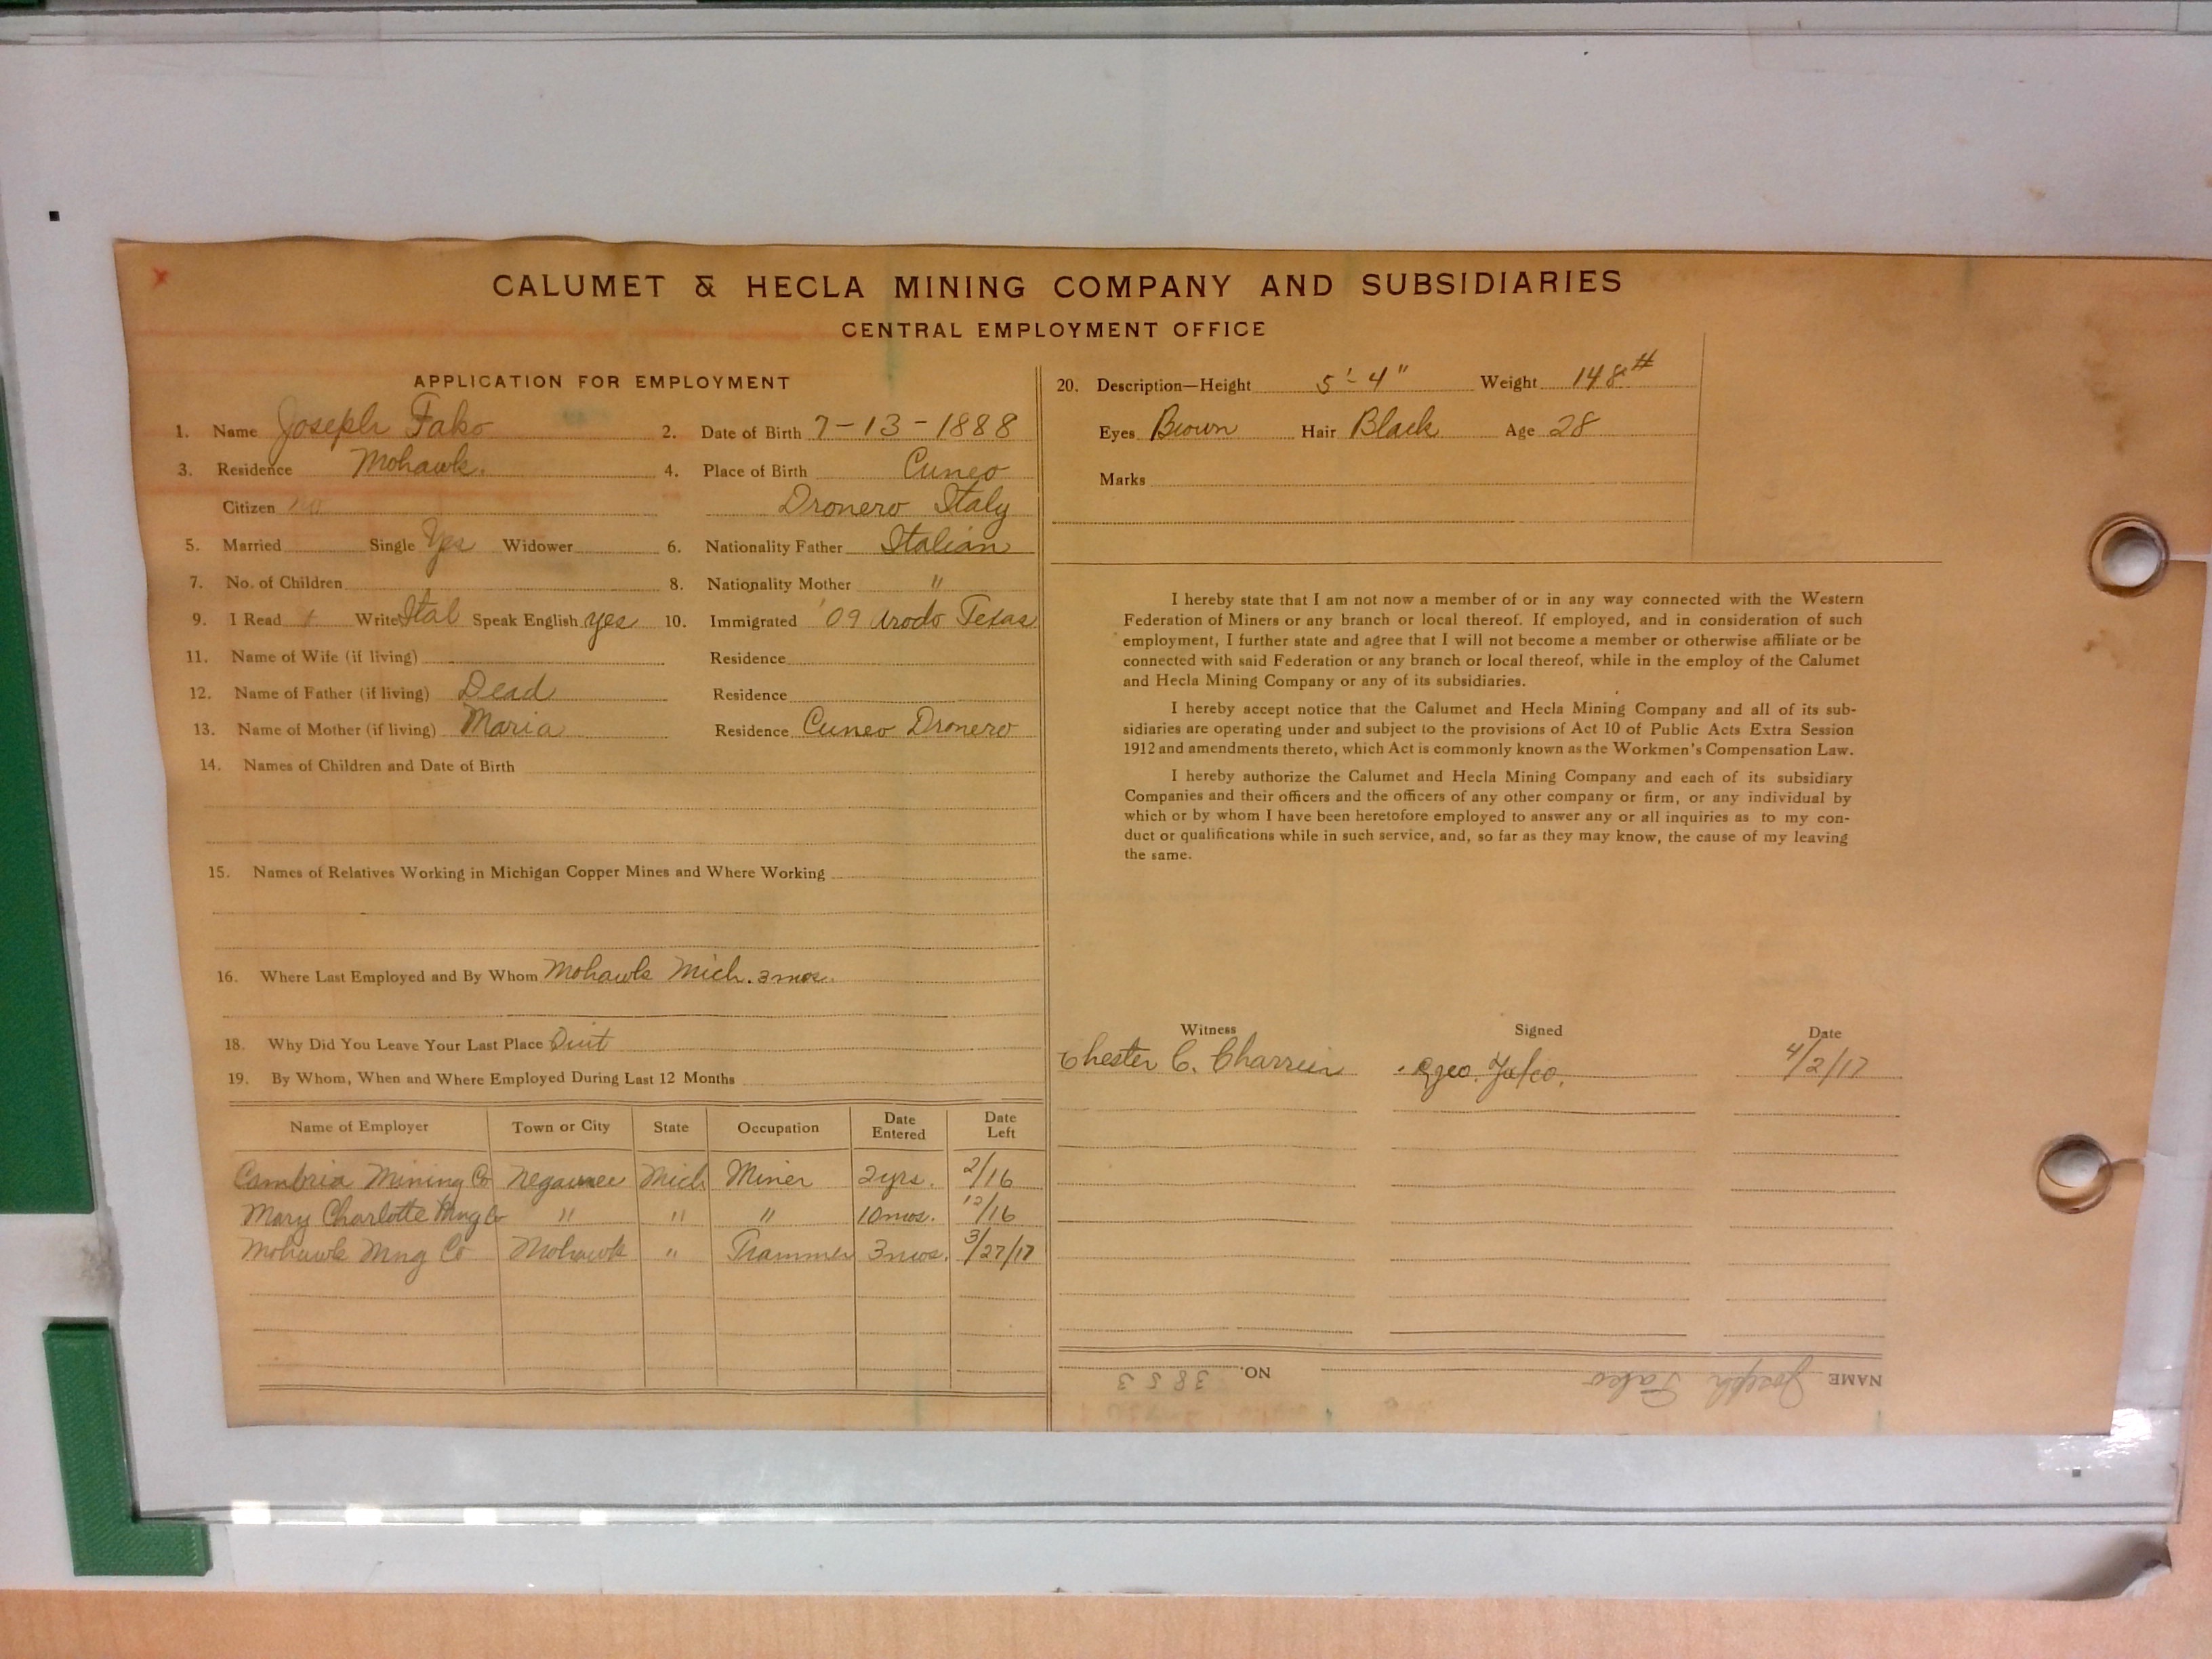 CALUMET & HECLA MINING COMPANY AND SUBSIDIARIES
CENTRAL EMPLOYMENT OFFICE
APPLICATION FOR EMPLOYMENT
1. Name Joseph Fako 2. Date of Birth 7-13-1888
3. Residence Mohawk. 4. Place of Birth Cuneo
Citizen no Dronero Italy
5. Married Single Yes Widower 6. Nationality Father Italian
7. No. of Children 8. Nationality Mother "
9. I Read Write Ital Speak English yes 10. Immigrated '09 Texas
11. Name of Wife (if living) Residence
12. Name of Father (if living) Dead Residence
13. Name of Mother (if living) Maria Residence Cuneo Dronero
14. Names of Children and Date of Birth
15. Names of Relatives Working in Michigan Copper Mines and Where Working
16. Where Last Employed and By Whom Mohawk Mich. 3 mos.
18. Why Did You Leave Your Last Place Quit
19. By Whom, When and Where Employed During Last 12 Months
Name of Employer Town or City State Occupation Date Entered Date Left
Cambria Mining Co Negaunee Mich Miner 2 yrs. 2/16
Mary Charlotte Mng Co " " " 10 mos. 12/16
Mohawk Mng Co Mohawk " Trammer 3 mos. 3/27/17
20. Description—Height 5'-4" Weight 148#
Eyes Brown Hair Black Age 28
Marks
I hereby state that I am not now a member of or in any way connected with the Western
Federation of Miners or any branch or local thereof. If employed, and in consideration of such
employment, I further state and agree that I will not become a member or otherwise affiliate or be
connected with said Federation or any branch or local thereof, while in the employ of the Calumet
and Hecla Mining Company or any of its subsidiaries.
I hereby accept notice that the Calumet and Hecla Mining Company and all of its sub-
sidiaries are operating under and subject to the provisions of Act 10 of Public Acts Extra Session
1912 and amendments thereto, which Act is commonly known as the Workmen's Compensation Law.
I hereby authorize the Calumet and Hecla Mining Company and each of its subsidiary
Companies and their officers and the officers of any other company or firm, or any individual by
which or by whom I have been heretofore employed to answer any or all inquiries as to my con-
duct or qualifications while in such service, and, so far as they may know, the cause of my leaving
the same.
Witness Signed Date
Chester C. 4/2/17
NAME Joseph Fako NO. 3853